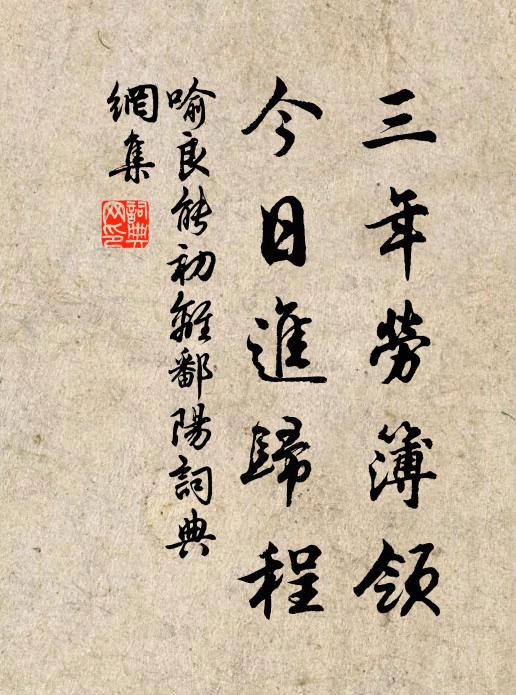 三年勞簿領
今日進歸程
喻良能初離鄱陽詞典
網集
詞典
网印